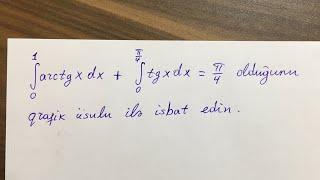 ∫₀¹ arctgx dx + ∫₀^(π/4) tgx dx = π/4 olduğunu
qrafik üsulu ilə isbat edin.